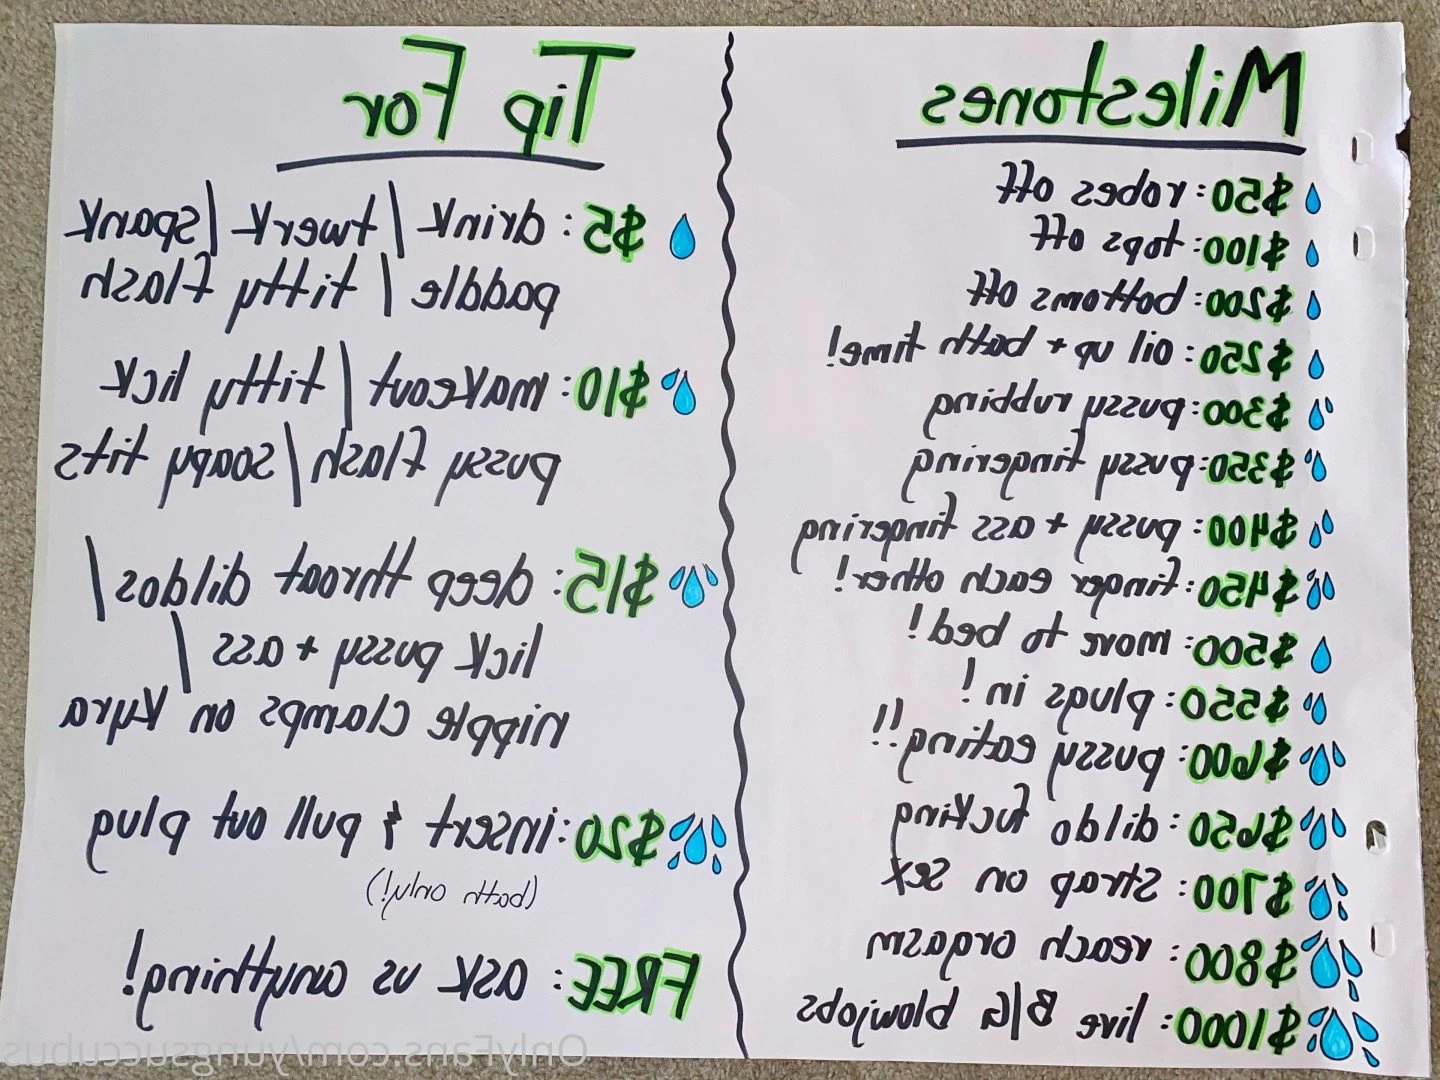 Milestones
$50: robes off
$100: tops off
$200: bottoms off
$250: oil up + bath time!
$300: pussy rubbing
$350: pussy fingering
$400: pussy + ass fingering
$450: finger each other!
$500: move to bed!
$550: plugs in!
$600: pussy eating!!
$650: dildo fucking
$700: strap on sex
$800: reach orgasm
$1000: live B/G blowjobs
Tip For
$5: drink / twerk / spank
paddle / titty flash
$10: makeout / titty lick
pussy flash / soapy tits
$15: deep throat dildos /
lick pussy + ass /
nipple clamps on Kyra
$20: insert & pull out plug
(bath only!)
FREE: ask us anything!
OnlyFans.com/yungsuccubus